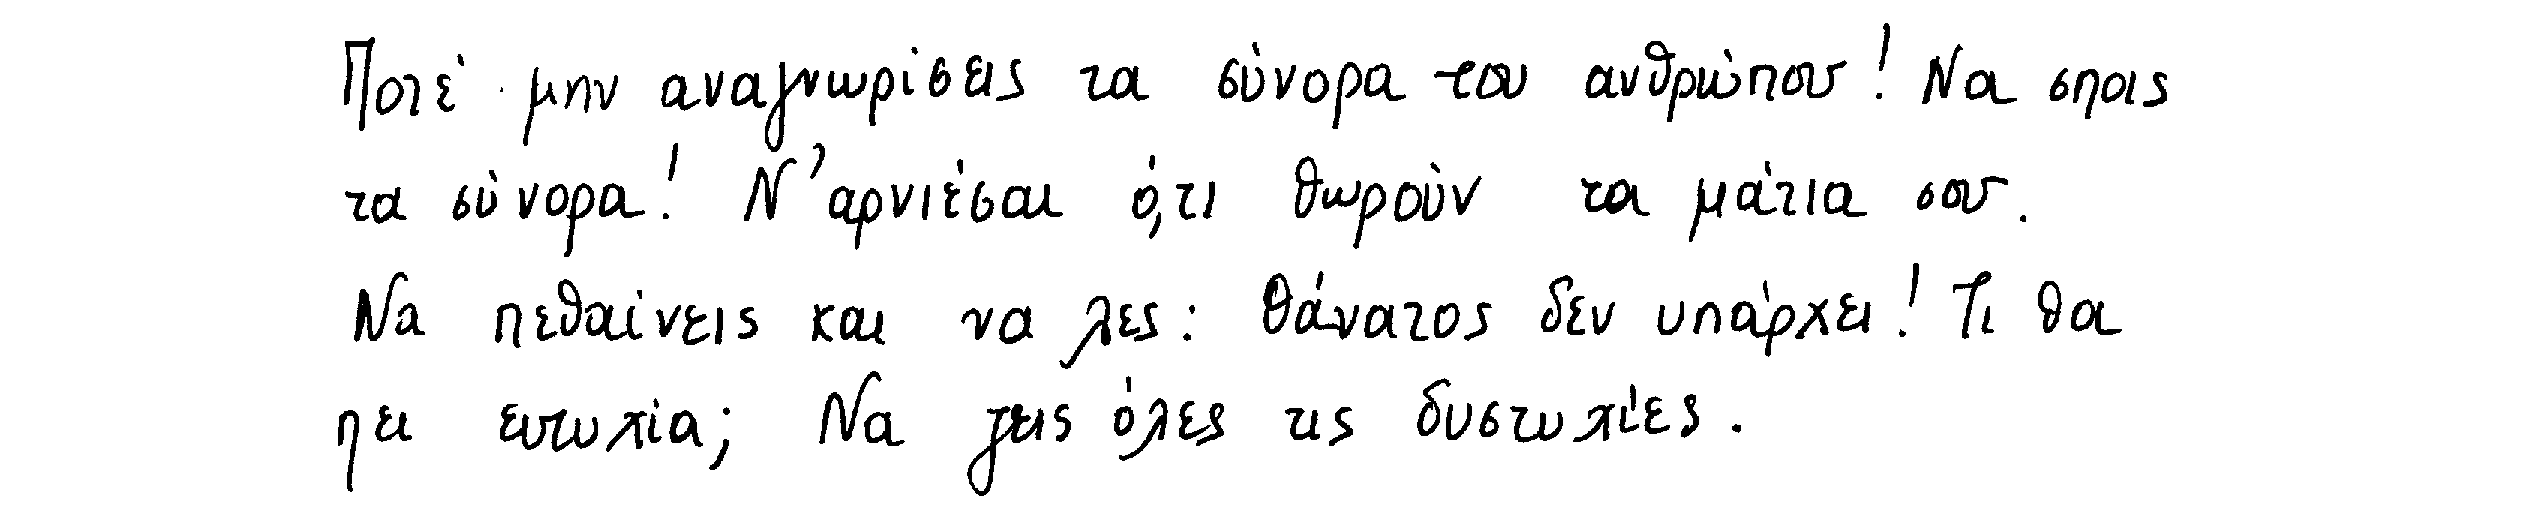 Ποτέ μην αναγνωρίσεις τα σύνορα του ανθρώπου! Να σπας
τα σύνορα! Ν'αρνιέσαι ό,τι θωρούν τα μάτια σου.
Να πεθαίνεις και να λες: Θάνατος δεν υπάρχει! Τι θα
πει ευτυχία; Να ζεις όλες τις δυστυχίες.